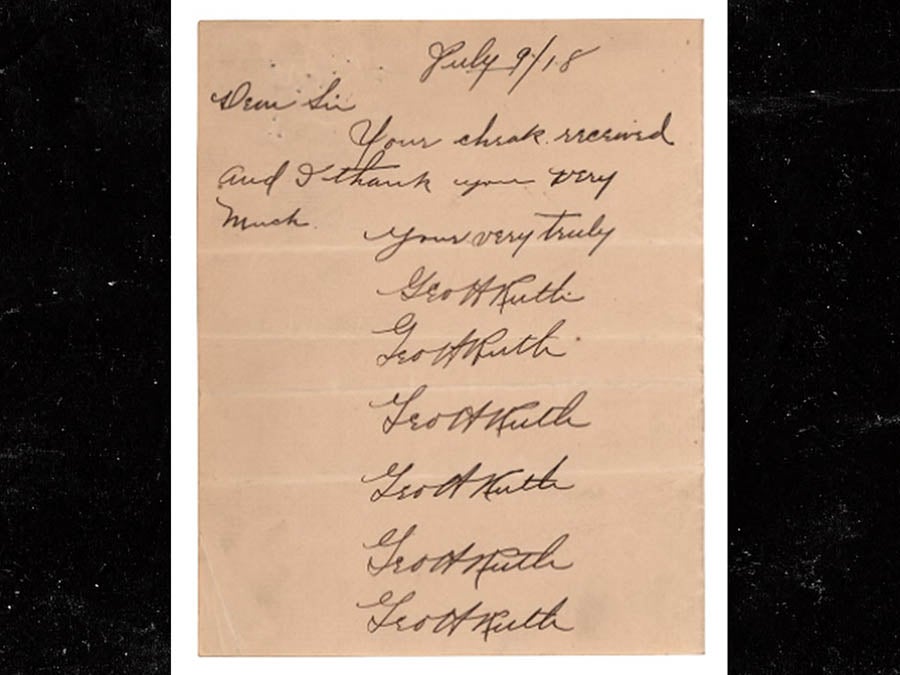 July 9/18
Dear Sir
Your cheak received
and I thank you very
Much.
Your very truly
Geo H Ruth
Geo H Ruth
Geo H Ruth
Geo H Ruth
Geo H Ruth
Geo H Ruth